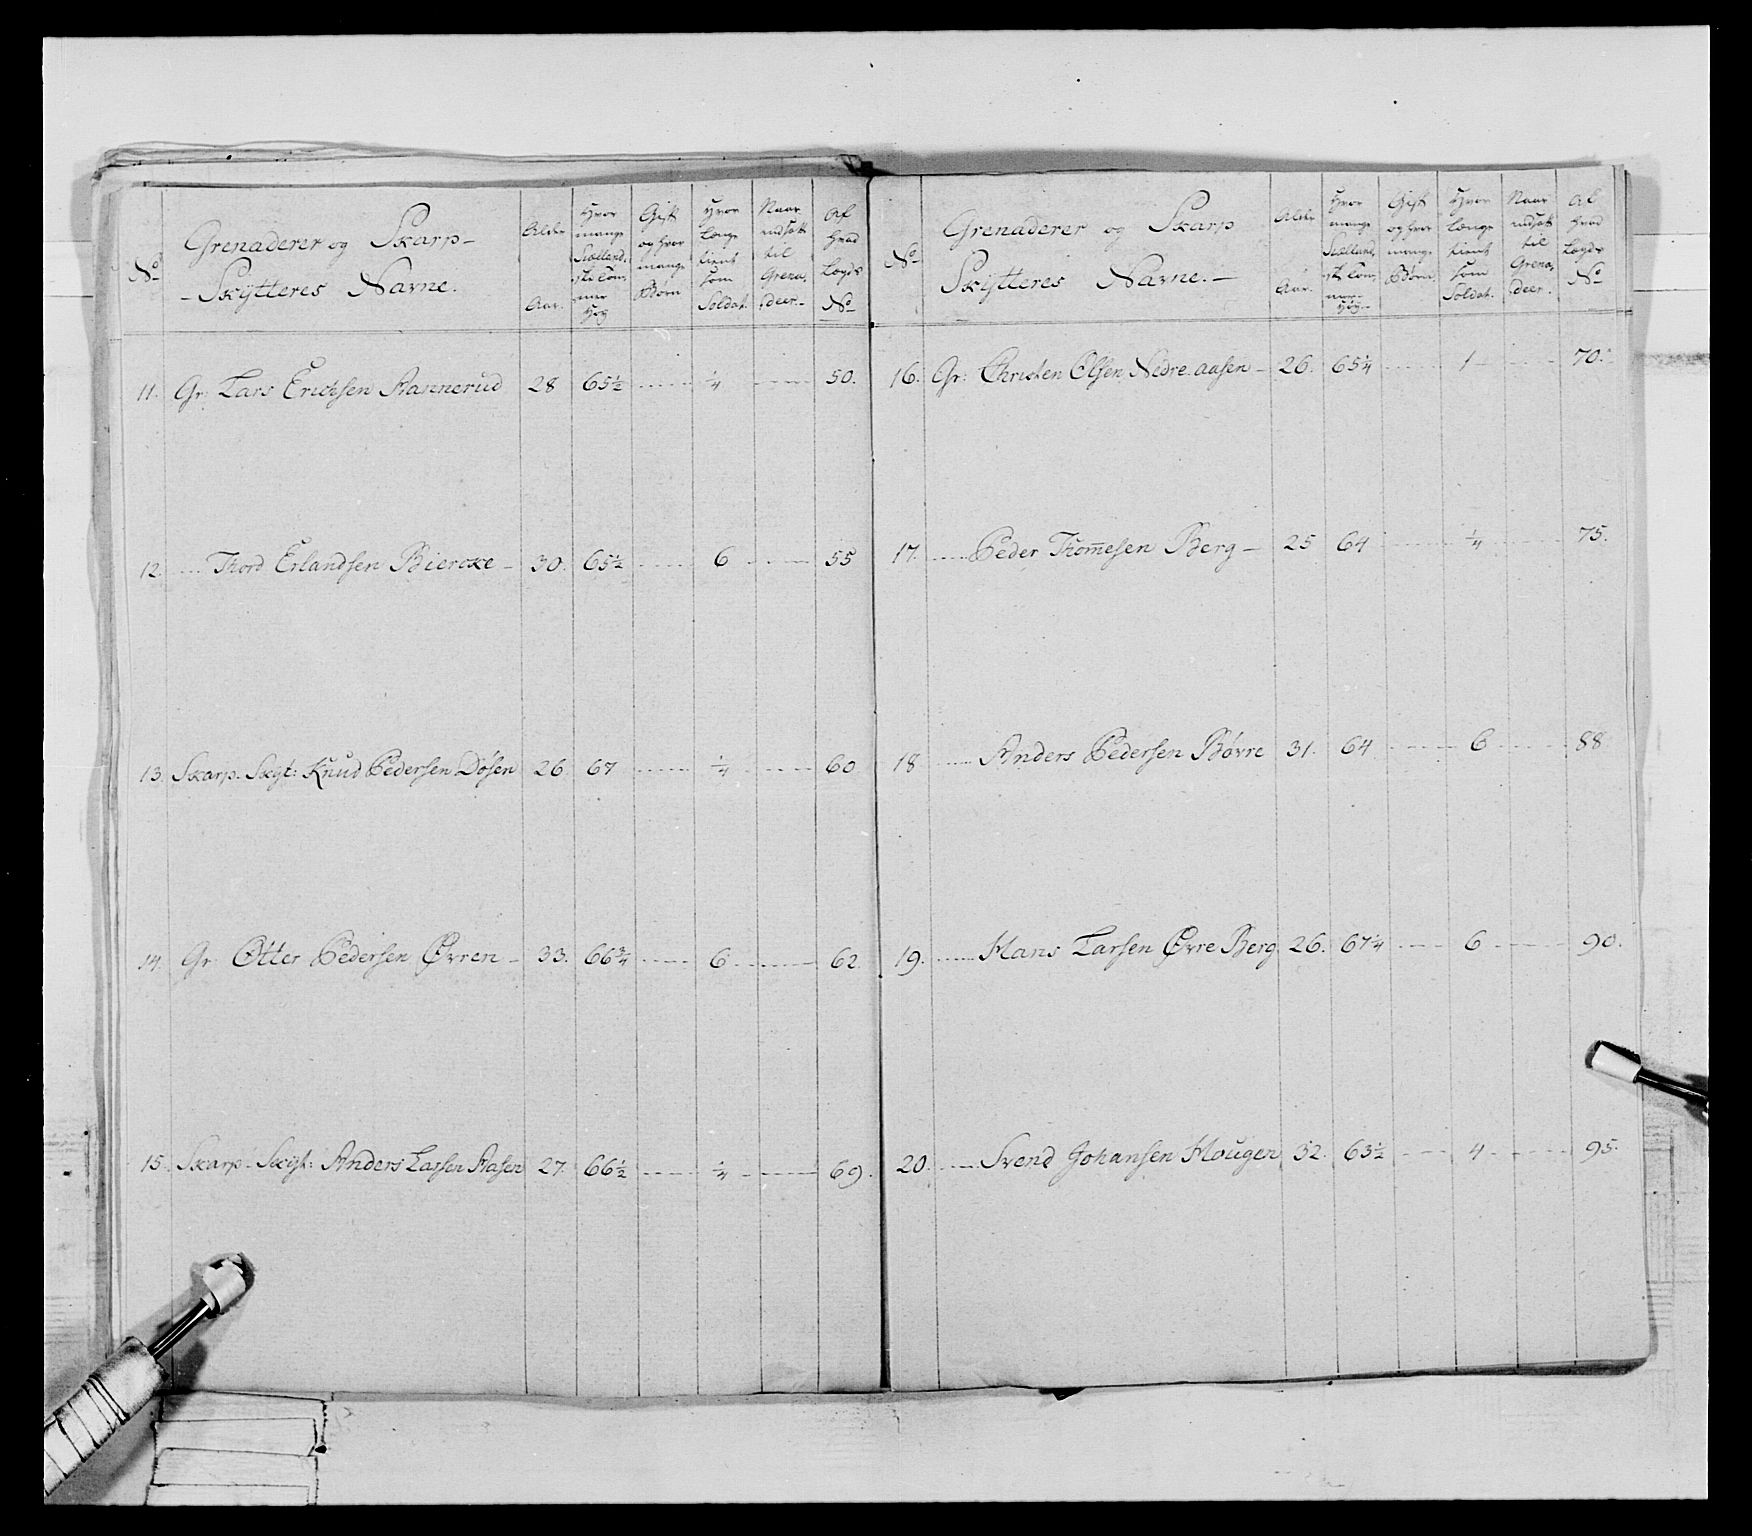 No
Grenaderer og Skarp-
-Skÿtteres Navne.
Alder
Aar.
Hvor
mange
Siælland,
ske Tom,
mer
Høy
Gift
og hvor
mange
Børn
Hvor
længe
tient
som
Soldat.
Naar
udsatt
til
Grena,
deer.-
Af
hvad
Lægds
No
11. Gr: Lars Erichsen Rannerud 28 65½ ¼ 50.
12. Thord Erlandsen Biercke - 30. 65½ 6 55
13. Skarp. Skyt: Knud Pedersen Døsen 26 67 ¼ 60
14. Gr Otter Pedersen Øvren - 33. 66¾ 6 62.
15. Skarp. Skyt: Anders Larsen Aasen 27. 66½ ¼ 69.
No
Grenaderer og Skarp
Skÿtteres Navne. -
Alder
Aar.
Hvor
mange
Siælland,
ske Tom,
mer
Høy
Gift
og hvor
mange
Børn.
Hvor
længe
tient
som
Soldat.
Naar
udsatt
til
Grena,
deer.
Af
hvad
Lægds
No
16. Gr: Christen Olsen Nedre Aasen - 26. 65¼ 1 70.
17. Peder Thom̅esen Berg - 25 64 ¼ 75.
18 Anders Pedersen Bøvre 31. 64 6 88
19. Hans Larsen Øvre Berg 26. 67¼ 6 90.
20. Svend Johansen Hougen 32. 63½ 4 95.